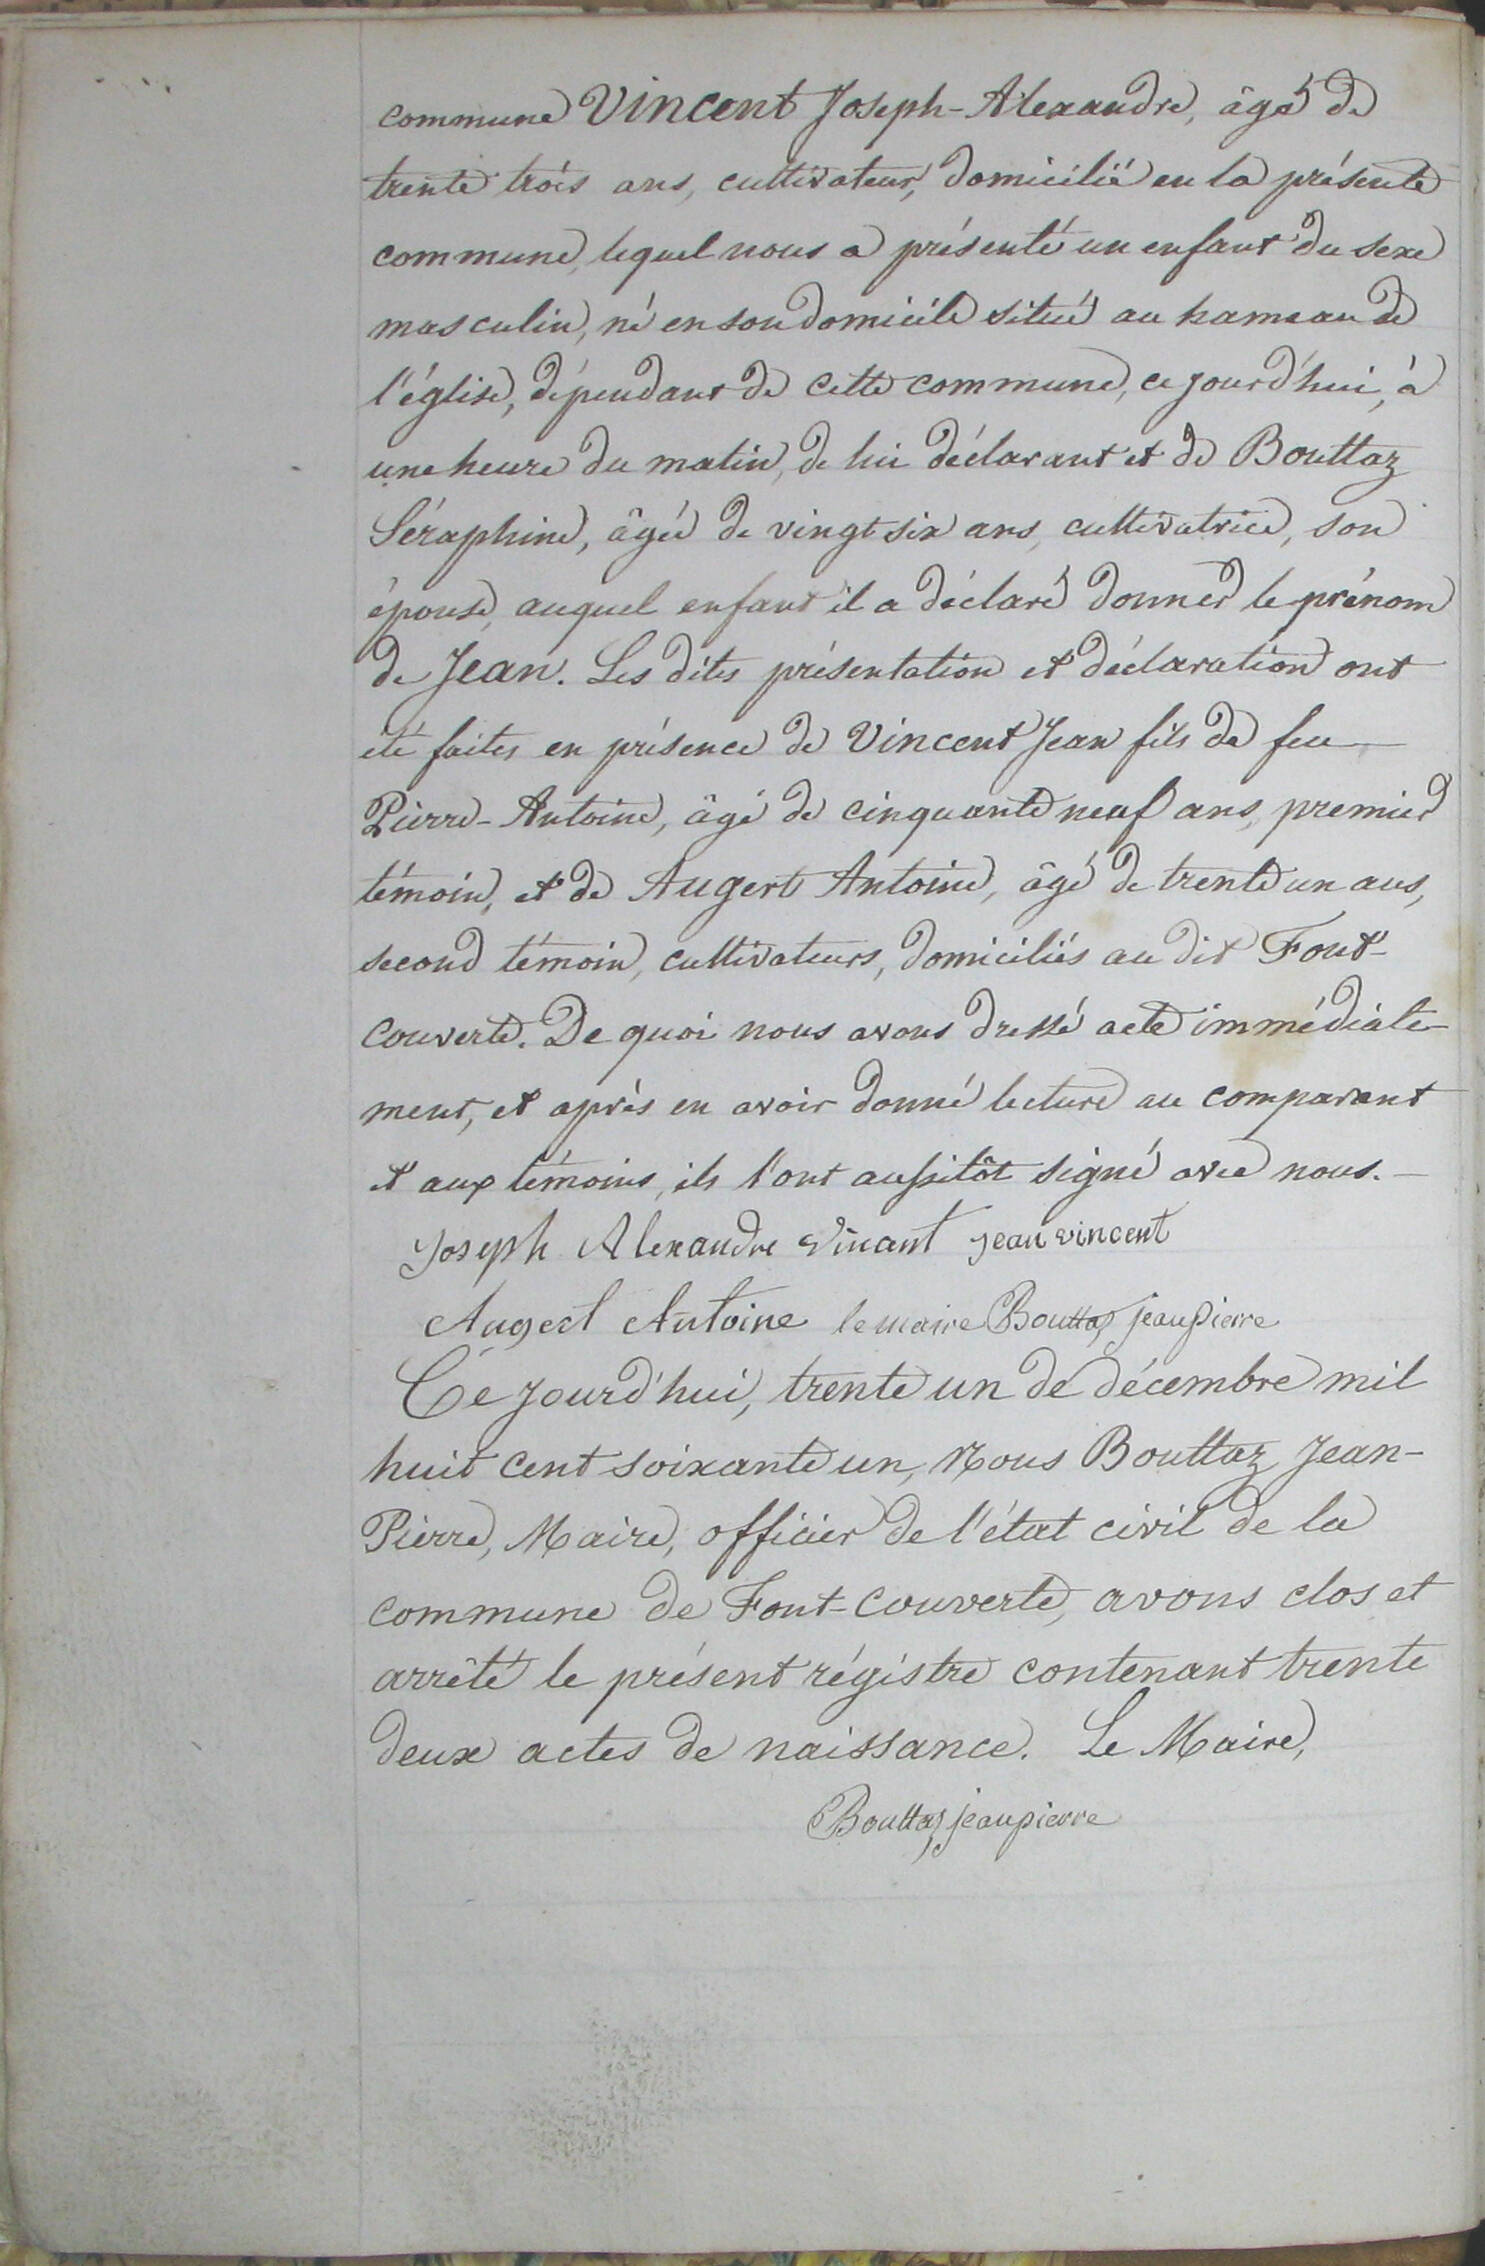 commune Vincent Joseph-Alexandre, âgé de
trente trois ans, cultivateur, domicilié en la présente
commune, lequel nous a présenté un enfant du sexe
masculin, né en son domicile situé au hameau de
l'église, dépendant de cette commune, ce jourd'hui, à
une heure du matin, de lui déclarant et de Bouttaz
Séraphine, âgée de vingt six ans, cultivatrice, son
épouse, auquel enfant il a déclaré donner le prénom
de Jean. Les dites présentation et déclaration ont
été faites en présence de Vincent Jean fils de feu
Pierre-Antoine, âgé de cinquante neuf ans, premier
témoin, et de Augert Antoine, âgé de trente un ans,
second témoin, cultivateurs, domiciliés au dit Font-
couverte. De quoi nous avons dressé acte immédiate-
ment, et après en avoir donné lecture au comparant
et aux témoins, ils l'ont aussitôt signé avec nous.-
Joseph Alexandre Vincant jean vincent
Augert Antoine le maire Bouttaz jean Pierre
Ce jourd'hui, trente un de décembre mil
huit cent soixante un, Nous Bouttaz Jean-
Pierre, Maire, officier de l'état civil de la
commune de Font-couverte, avons clos et
arrêté le présent régistre contenant trente
deux actes de naissance. Le Maire,
Bouttaz jean pierre